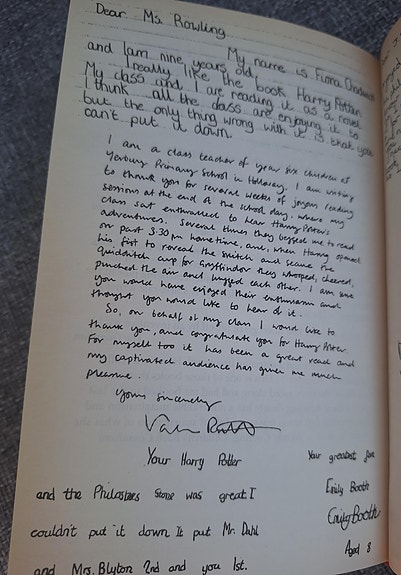 Dear Ms. Rowling
My name is Fiona Chadwick
and I am nine years old,
I really like the book Harry Potter.
My class and I are reading it as a novel
I think all the class are enjoying it to
but the only thing wrong with it is that you
can't put it down.
I am a class teacher of year six children at
Yerbury Primary School in Holloway. I am writing
to thank you for several weeks of joyous reading
sessions at the end of the school day, where my
class sat enthralled to hear Harry Potter's
adventures. Several times they begged me to read
on past 3:30 pm home time, and, when Harry opened
his fist to reveal the snitch and secure the
quidditch cup for Gryffindor they whooped, cheered,
punched the air and hugged each other. I am sure
you would have enjoyed their enthusiasm and
thought you would like to hear of it.
So, on behalf of my class I would like to
thank you, and congratulate you for Harry Potter.
For myself too it has been a great read and
my captivated audience has given me much
pleasure.
Yours sincerely
Your Harry Potter
and the Philosters Stone was great. I
couldn't put it down It put Mr. Dahl
and Mrs. Blyton 2nd and you 1st.
Your greatest fan
Emily Booth
Emily Booth
Aged 8